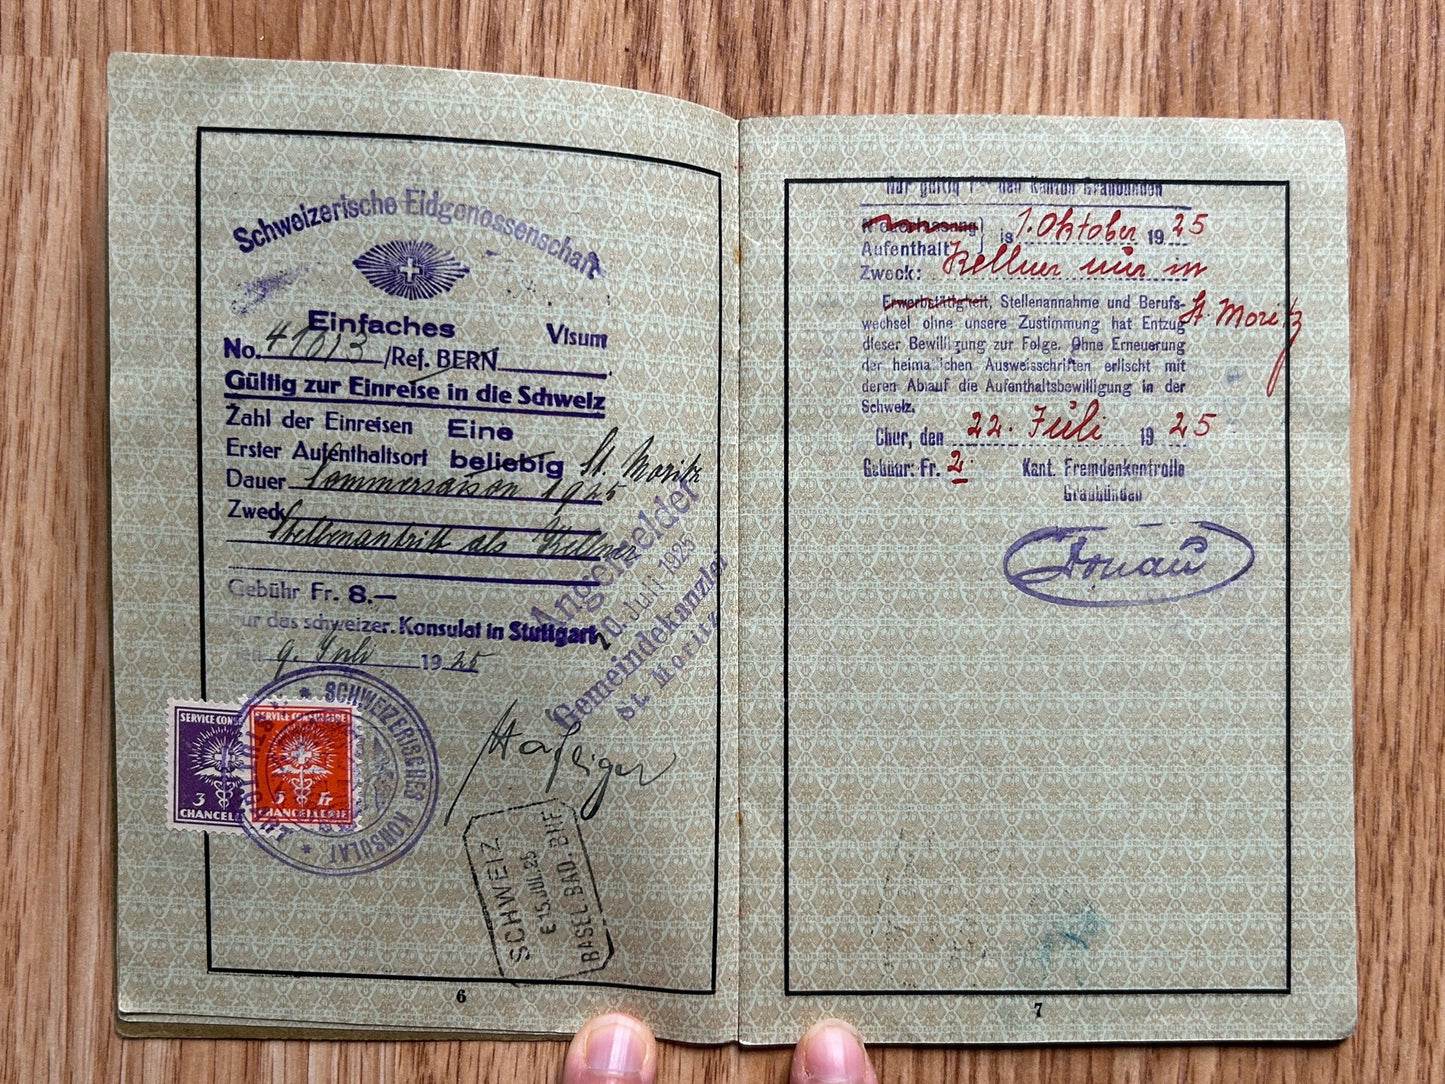 Schweizerische Eidgenossenschaft
Einfaches Visum
No. 41013 /Ref. BERN
Gültig zur Einreise in die Schweiz
Zahl der Einreisen Eine
Erster Aufenthaltsort beliebig St. Moritz
Dauer Sommersaison 1925
Zweck
Stellenantritt als Kellner
Gebühr Fr. 8.—
Für das schweizer. Konsulat in Stuttgart
den 9. Juli 1925
Angemeldet
20. Juli 1925
Gemeindekanzlei
St. Moritz
SERVICE CONSULAIRE
3
CHANCELLERIE
SERVICE CONSULAIRE
5 Fr
CHANCELLERIE
SCHWEIZERISCHES KONSULAT * STUTTGART *
SCHWEIZ
E 15. JUL. 25
BASEL BAD. BHF
6
Nur gültig für den Kanton Graubünden
Niederlassung
Aufenthalt } bis 1. Oktober 1925
Zweck: Kellner nur in
St. Moritz
Erwerbstätigkeit, Stellenannahme und Berufs-
wechsel ohne unsere Zustimmung hat Entzug
dieser Bewilligung zur Folge. Ohne Erneuerung
der heimatlichen Ausweisschriften erlischt mit
deren Ablauf die Aufenthaltsbewilligung in der
Schweiz.
Chur, den 22. Juli 1925
Gebühr: Fr. 2.
Kant. Fremdenkontrolle
Graubünden
7